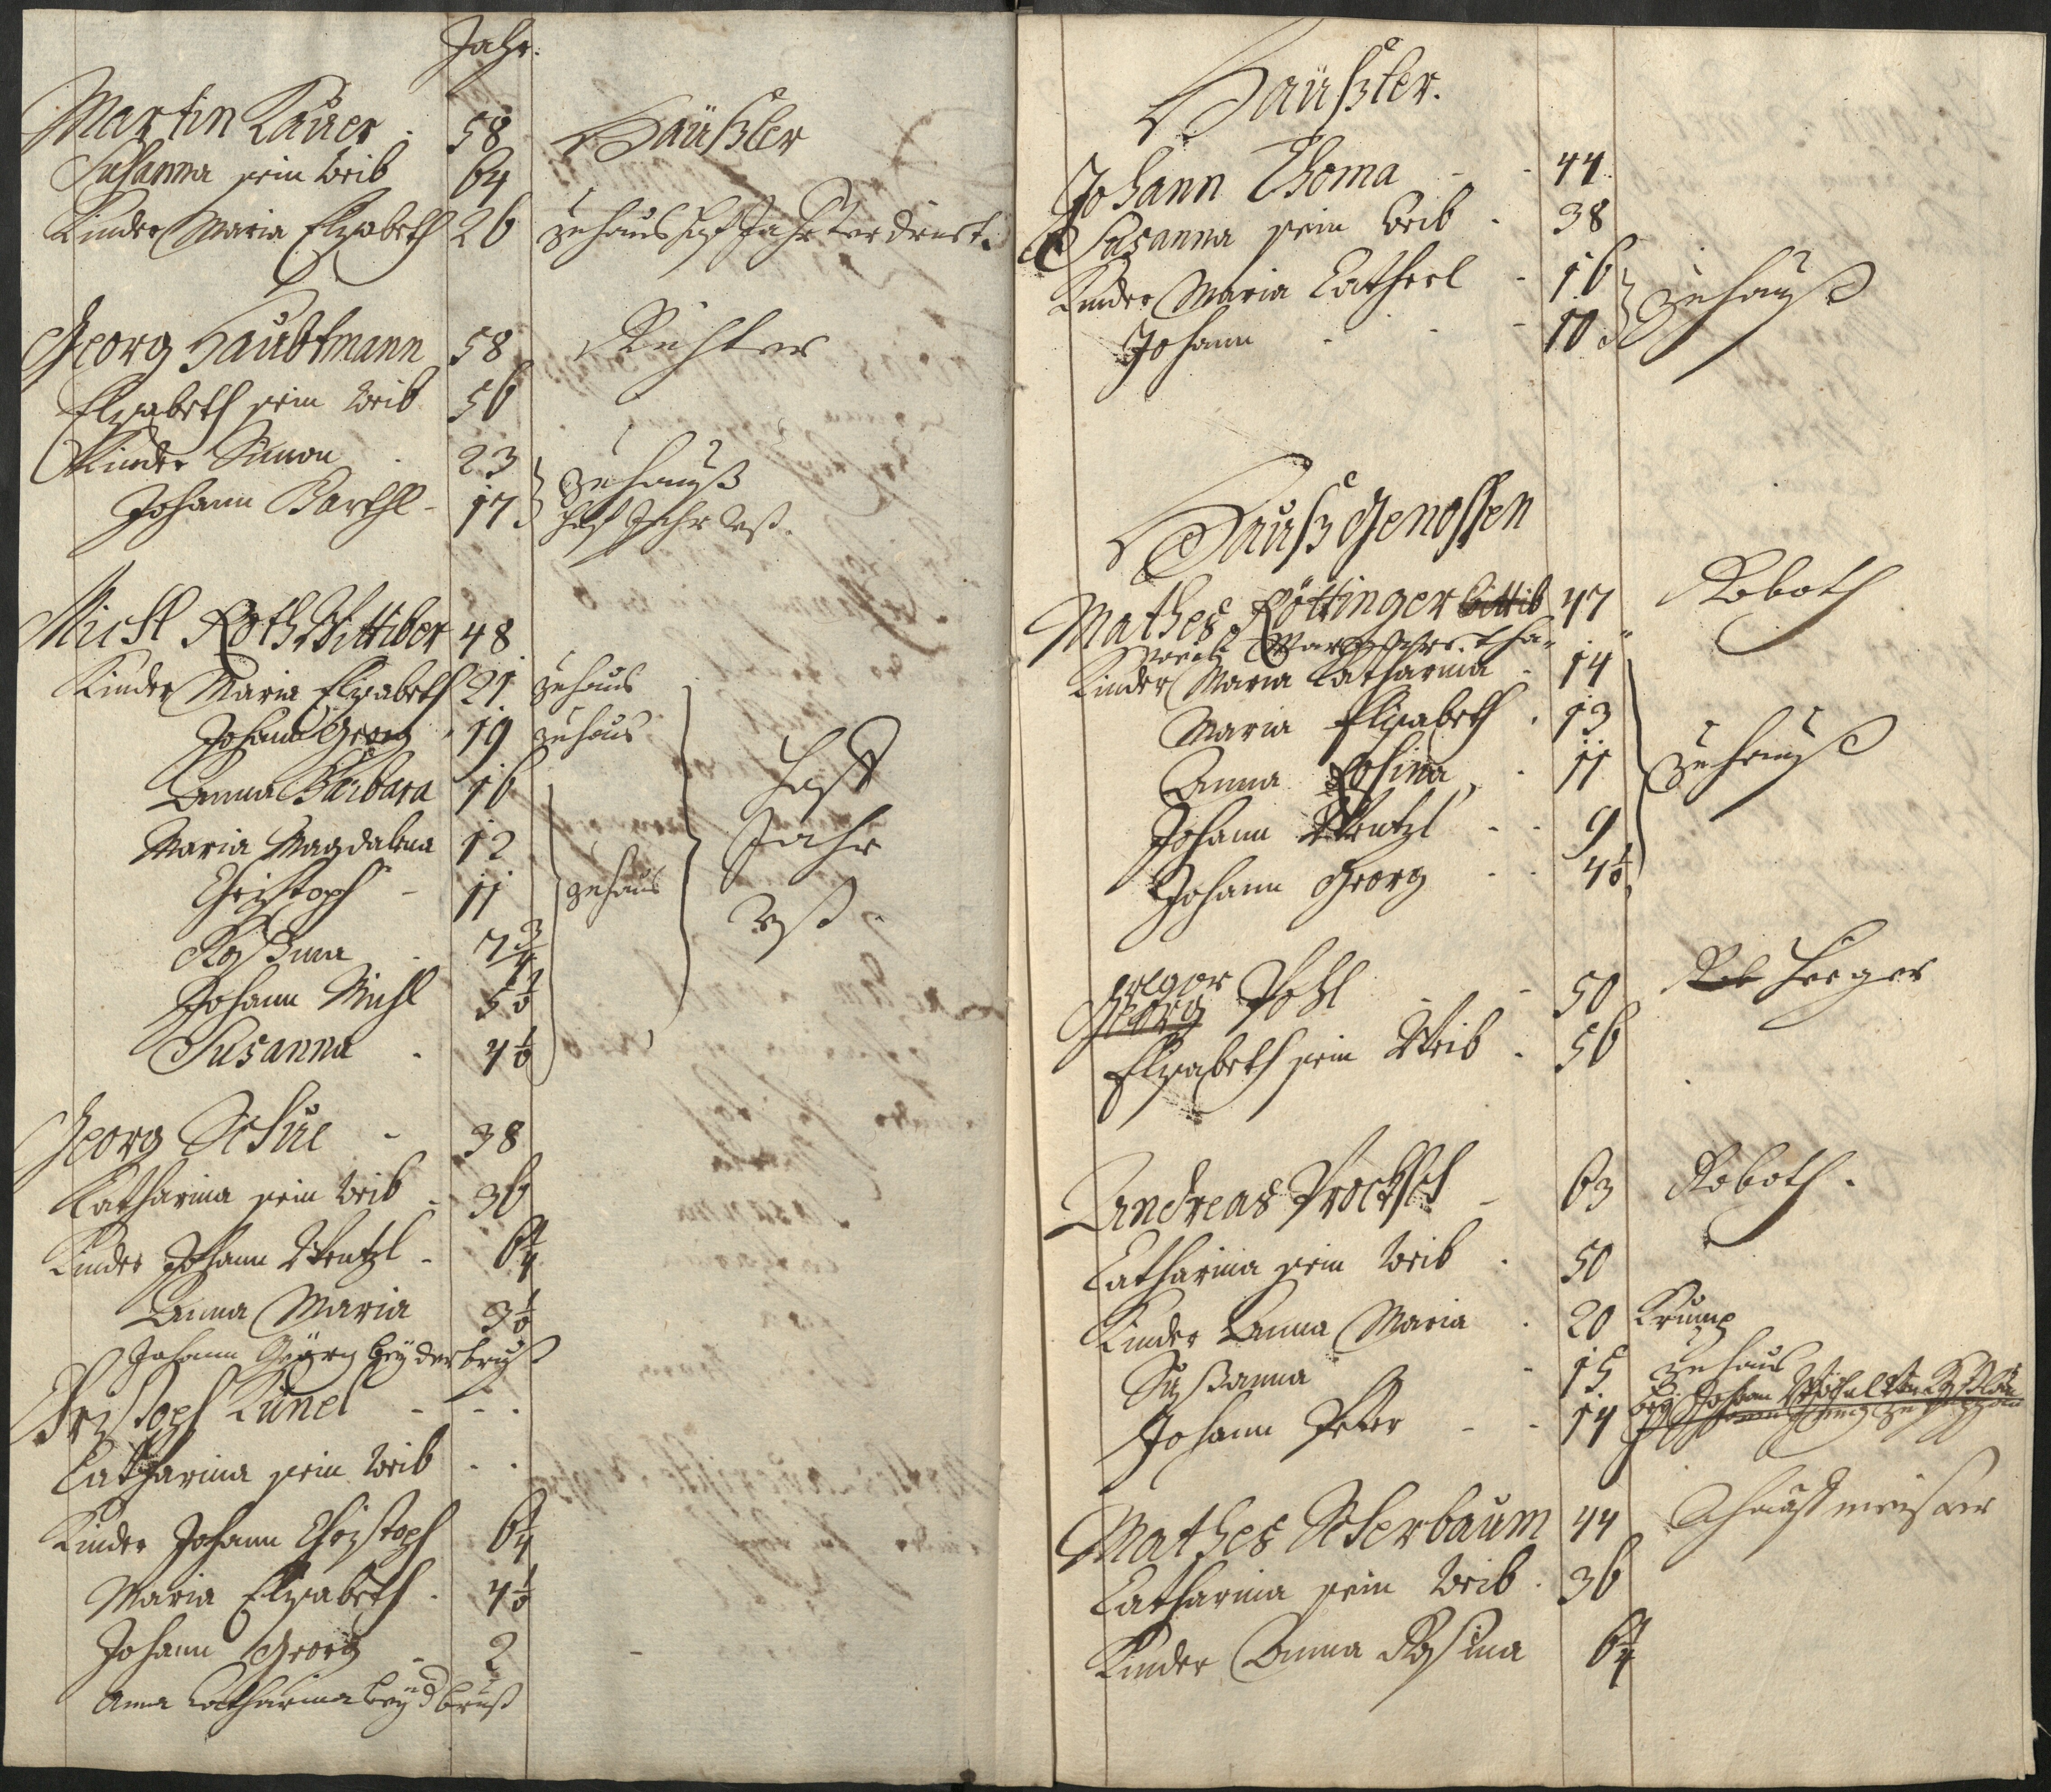 Jahr.
Martin Lauer . 58 Häußler
Susanna sein Weib 64
Kinder Maria Elisabeth 26 zuhaus hast Jahr
Georg Haubtmann 58 Richter
Elisabeth sein Weib 56
Kinder Simon . 23 zuhauß
Johann Barthl - 17 hast Jahr
Michl Roth Wittiber 48
Kinder Maria Elisabeth 21 zuhaus
Johann Georg 19 zuhaus
Anna Barbara 16 hast
Maria Magdalena 12 Jahr
Christoph - 11 zuhaus
Rosina . 7 3/4
Johann Michl 5 1/2
Susanna . 4 1/2
Georg Schue - 38
Catharina sein Weib - 36
Kinder Johann Wentzl - 6 1/4
Anna Maria 3 1/2
Johann Georg bey der brust
Christoph Künel - - .
Catharina sein Weib . .
Kinder Johann Christoph 6 1/4
Maria Elisabeth . 4 1/2
Johann Georg - 2
Anna Catharina bey d brust
Häußler.
Johann Thoma - - 44
Susanna sein Weib . 38
Kinder Maria Catherl - 16 zuhauß
Johann . - - 10
Hauß Genossen
Mathes Röttinger 47 Roboth
Kinder Maria Catharina - 14
Maria Elisabeth . 13
Anna Rosina . 11 zuhauß
Johann Wentzl - - 9
Johann Georg - - 4 1/2
Gregor
Georg Pohl - - 50 Heeger
Elisabeth sein Weib . 56
Andreas Procksch - 63 Roboth.
Catharina sein Weib . 50
Kinder Anna Maria . 20 Krump
Susanna - 15 zuhaus
Johann Peter - - 14 bey Johann
Mathes Scherbaum 44
Catharina sein Weib . 36
Kinder Anna Rosina 6 1/4